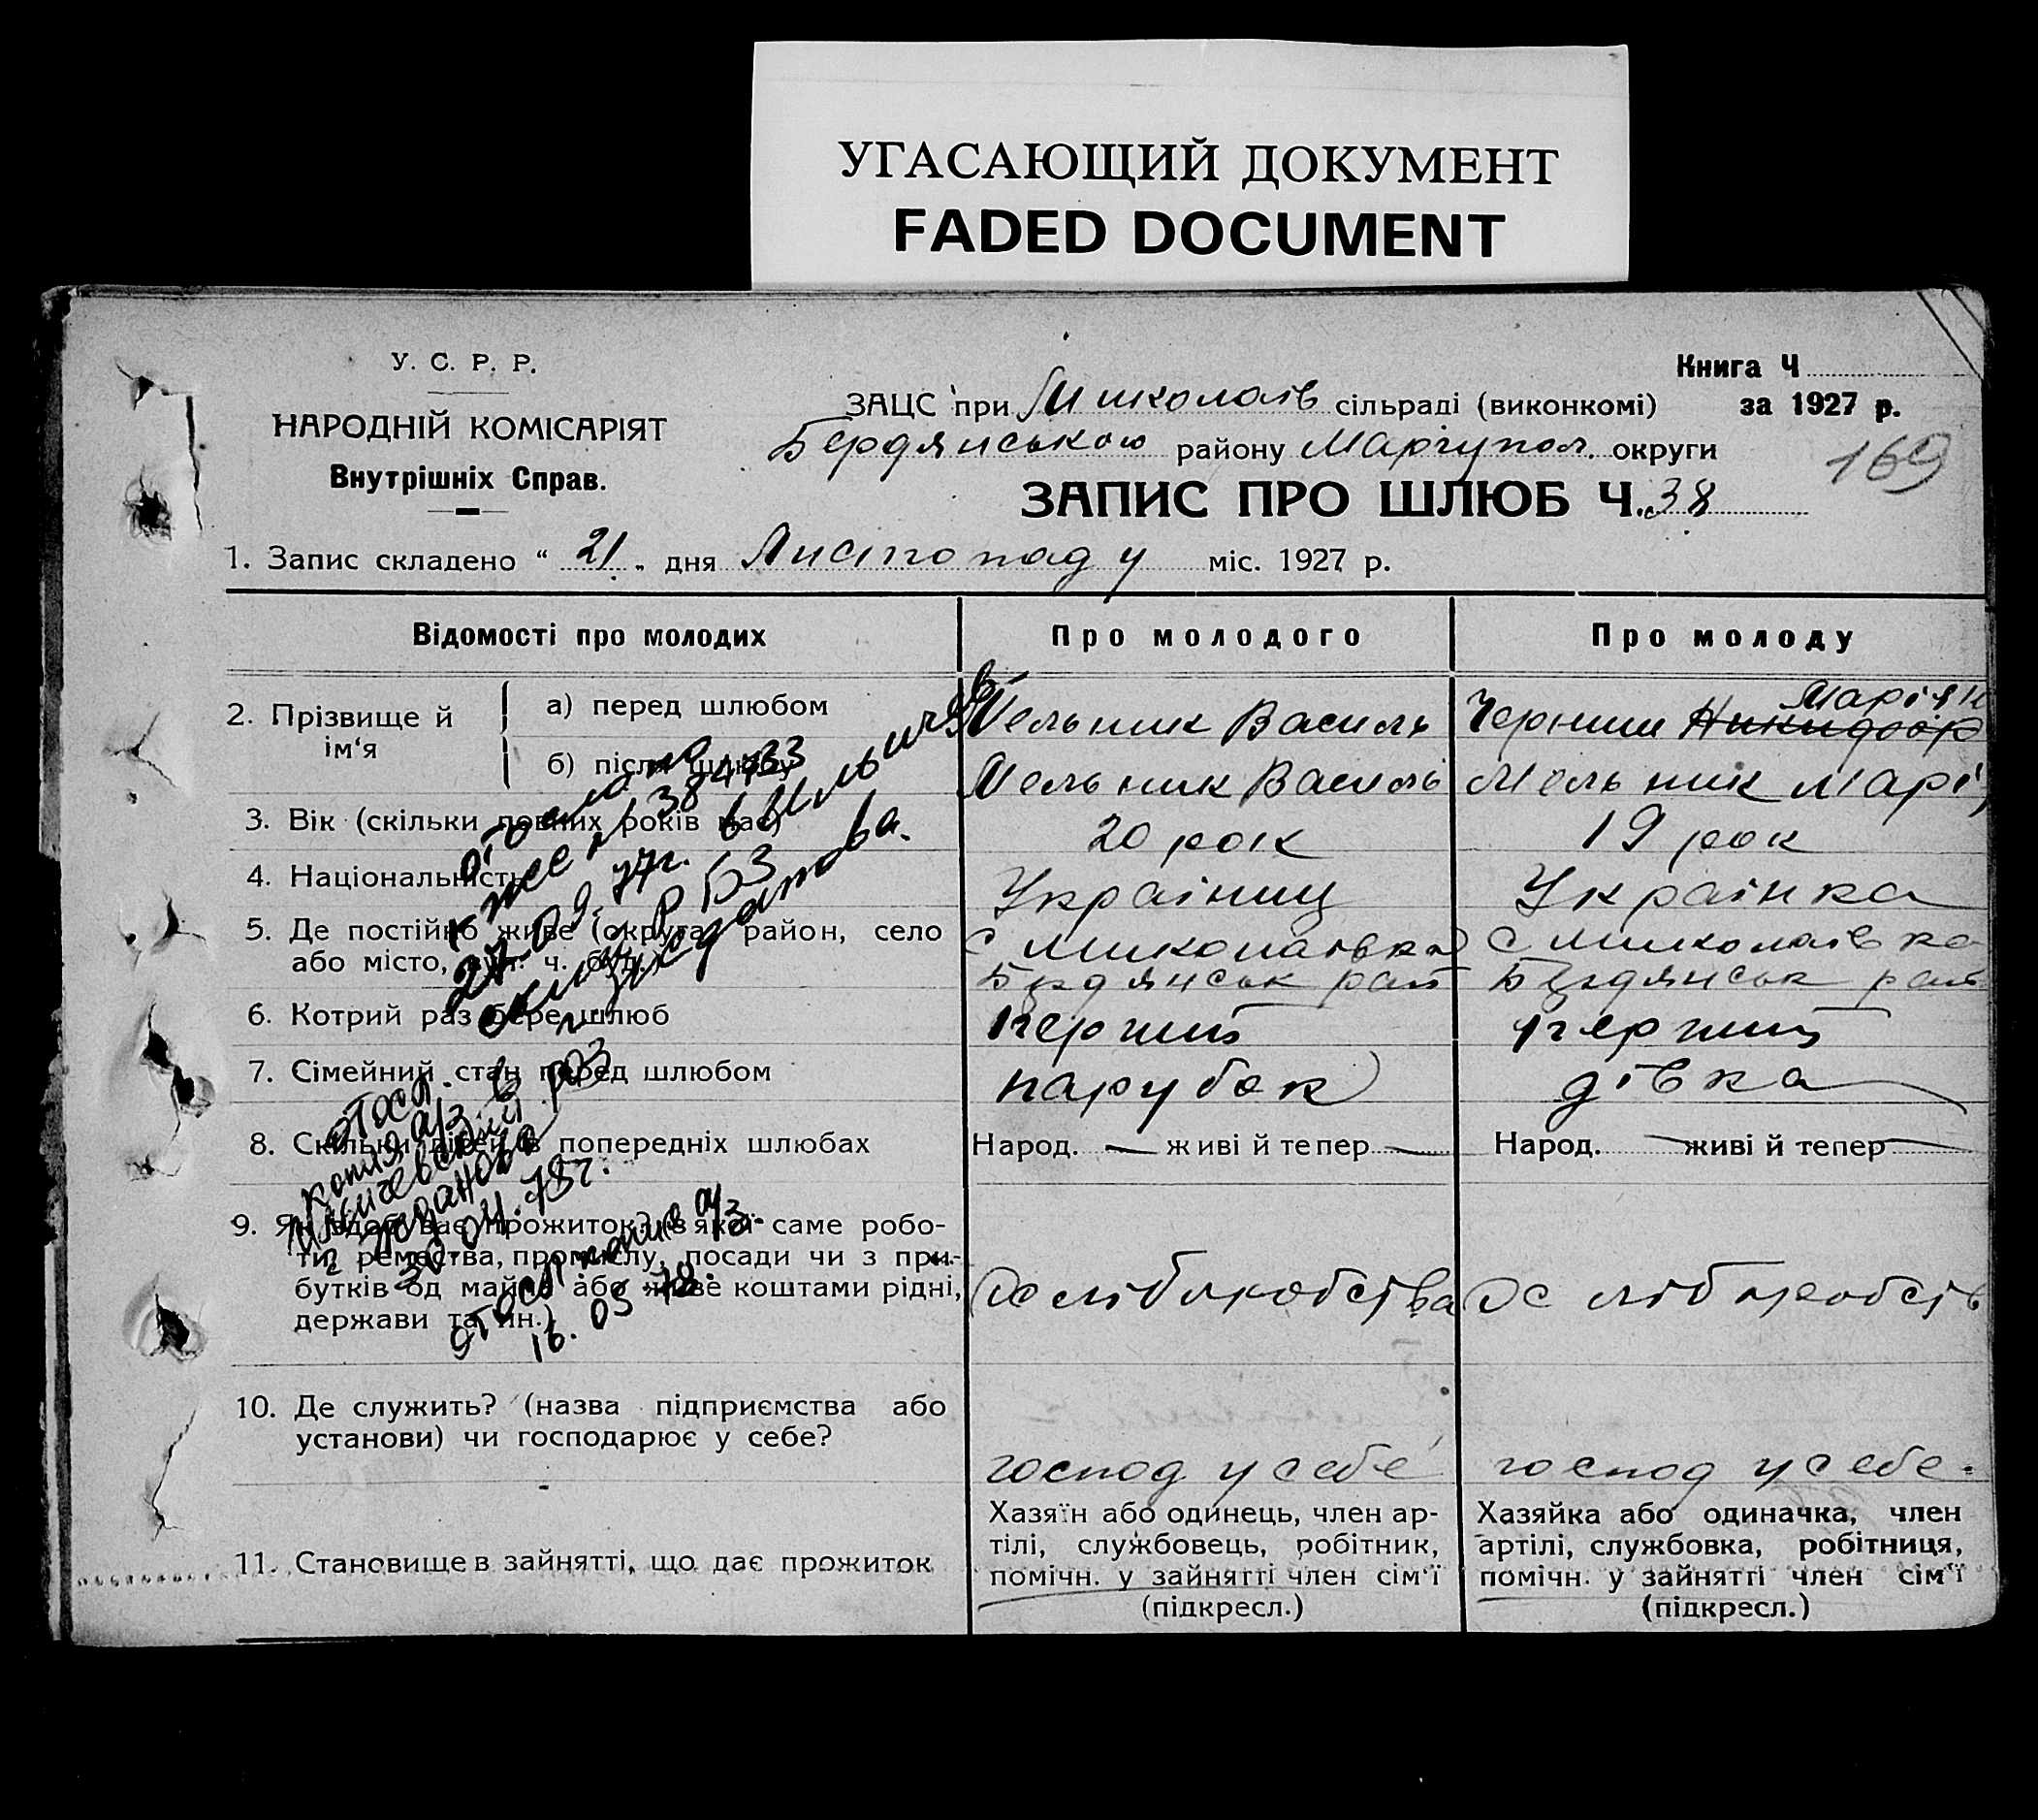 УГАСАЮЩИЙ ДОКУМЕНТ
FADED DOCUMENT
У. С. Р. Р.
НАРОДНІЙ КОМІСАРІЯТ
Внутрішніх Справ.
Книга Ч
ЗАЦС при Миколаїв сільраді (виконкомі) за 1927 р.
Бердянською району Маріупол. округи
169
ЗАПИС ПРО ШЛЮБ Ч. 38
1. Запис складено “ 21 „ дня Листопаду міс. 1927 р.
Відомості про молодих Про молодого Про молоду
2. Прізвище й ім‘я
а) перед шлюбом Мельник Василь Черниш Марія
б) після шлюбу Мельник Василь Мельник Марі
3. Вік (скільки повних років має) 20 рок 19 рок
4. Національність Українец Українка
5. Де постійно живе (округа, район, село
або місто, вул. ч. буд.
с Миколаівка с Миколаівка
Бердянськ рай Бердянськ рай
6. Котрий раз бере шлюб перший перший
7. Сімейний стан перед шлюбом парубок дівка
8. Скільки дітей в попередніх шлюбах Народ. — живі й тепер — Народ. — живі й тепер —
9. Як здобуває прожиток? (з якої саме робо-
ти, ремества, промислу, посади чи з при-
бутків од майна або живе коштами рідні,
держави та ин.)
10. Де служить? (назва підприємства або
установи) чи господарює у себе?
господ у себе господ у себе.
11. Становище в зайнятті, що дає прожиток
Хазяїн або одинець, член ар-
тілі, службовець, робітник,
помічн. у зайнятті член сім‘ї
(підкресл.)
Хазяйка або одиначка, член
артілі, службовка, робітниця,
помічн. у зайнятті член сім‘ї
(підкресл.)
384733
27.09.77г. в Ильичевск
г. Жданова.
отосл.
копия а/з в
Ильичевский РАЗ
г Жданова
30.04.78г.
отосл копия а/з.
16.05.78.